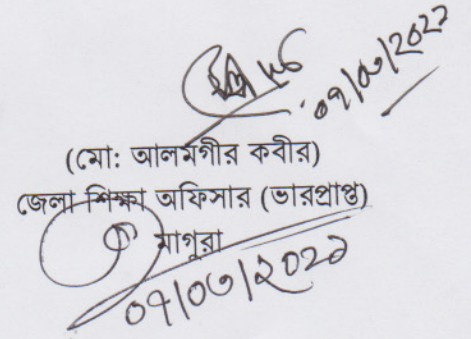 ০৭/০৩/২০২২
(মো: আলমগীর কবীর)
জেলা শিক্ষা অফিসার (ভারপ্রাপ্ত)
মাগুরা
০৭/০৩/২০২২